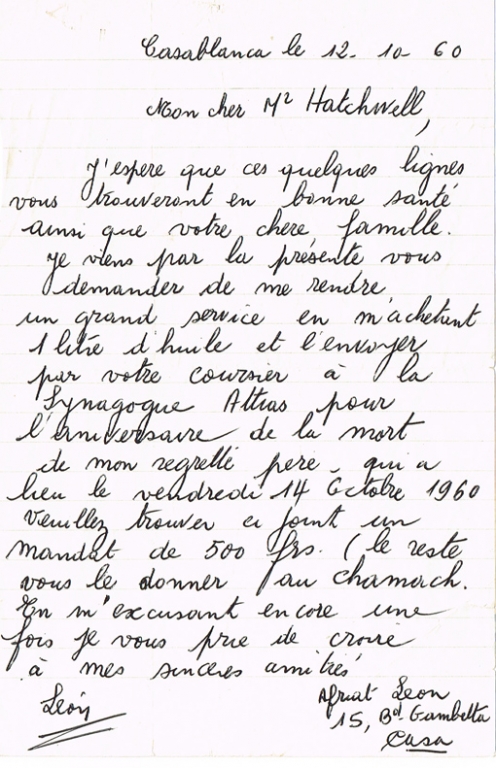 Casablanca le 12-10-60
Mon cher Mr Hatchwell,
J'espere que ces quelques lignes
vous trouveront en bonne santé
ainsi que votre chere famille.
Je viens par la présente vous
demander de me rendre
un grand service en m'achetant
1 litre d'huile et l'envoyer
par votre coursier à la
Synagogue Attias pour
l'aniversaire de la mort
de mon regretté pere - qui a
lieu le vendredi 14 Octobre 1960
Veuillez trouver ci joint un
mandat de 500 frs. (le reste
vous le donner au chamach.
En m'excusant encore une
fois je vous prie de croire
à mes sinceres amitiés
Leon
Afriat Leon
15, Bd. Gambetta
Casa